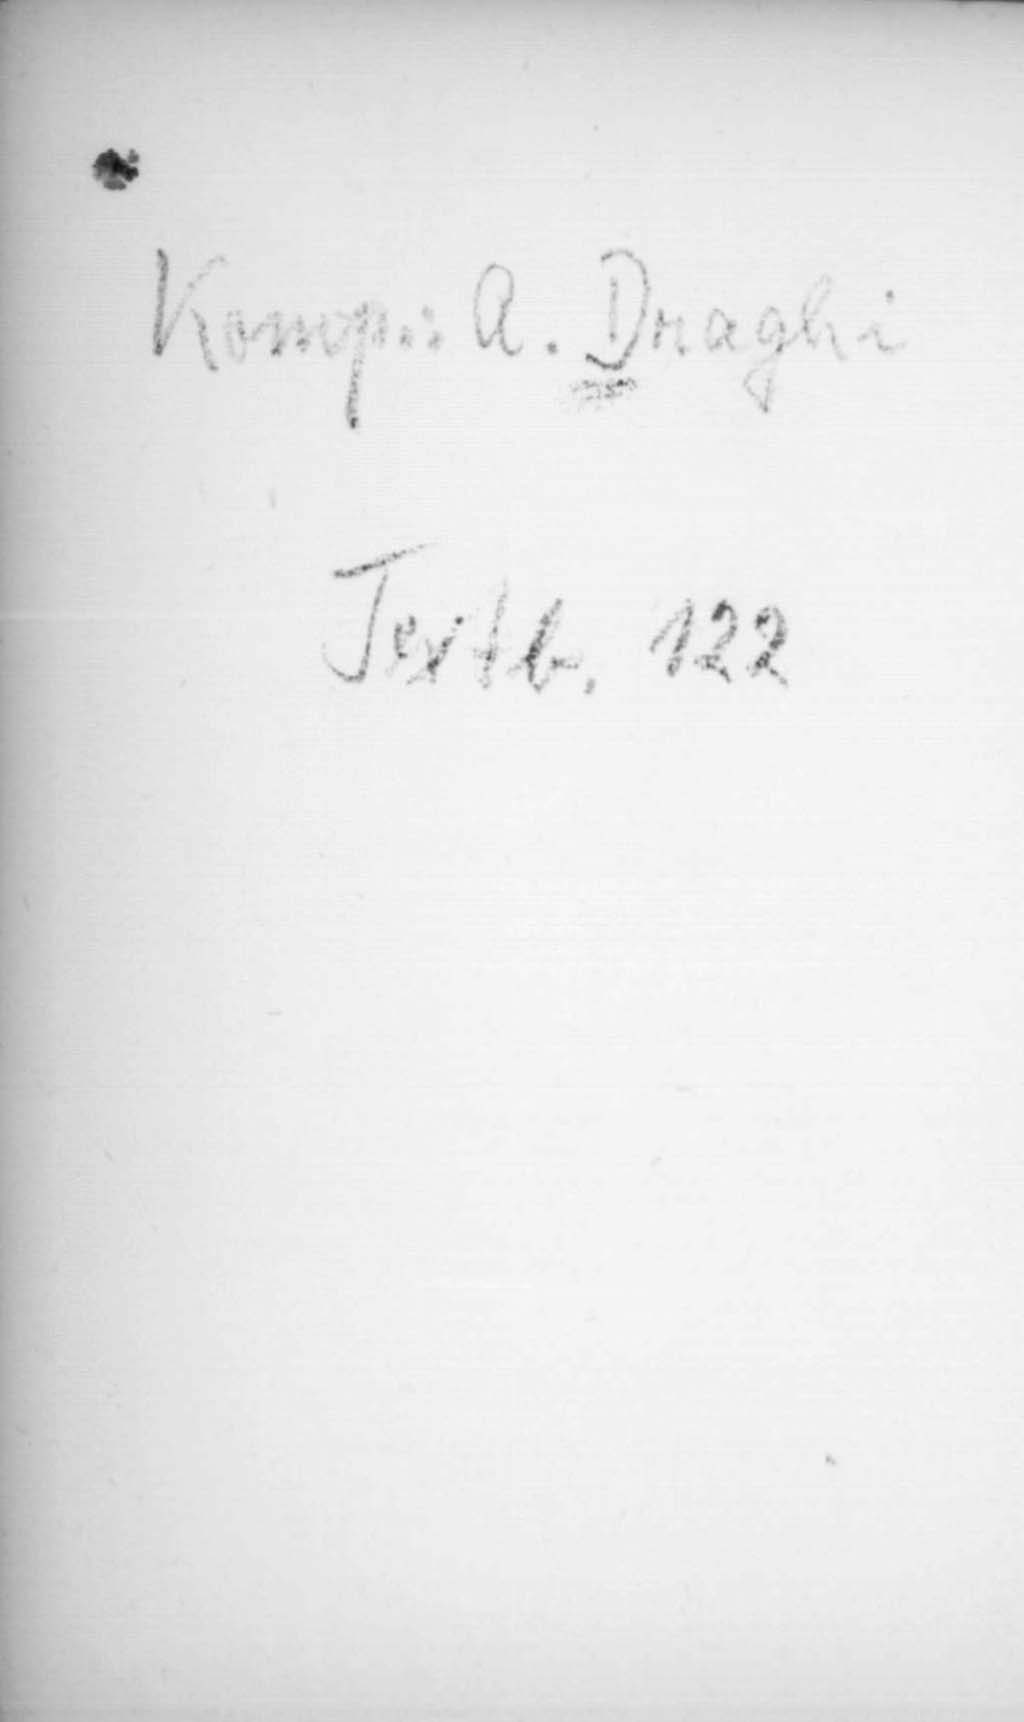 Komp.: A. Draghi
Textb. 122